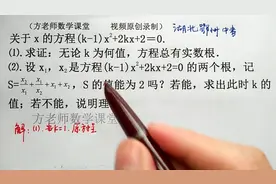 （方老师数学课堂 视频原创录制） 湖北鄂州中考
关于 x 的方程(k-1)x²+2kx+2＝0.
(1).求证：无论 k 为何值，方程总有实数根.
(2).设 x₁，x₂是方程(k-1)x²+2kx+2=0 的两个根，记
S=x₂/x₁+x₁/x₂+x₁+x₂，S 的值能为 2 吗？若能，求出此时 k 的
值；若不能，说明理
方老师数学课堂
解：(1).若k=1.